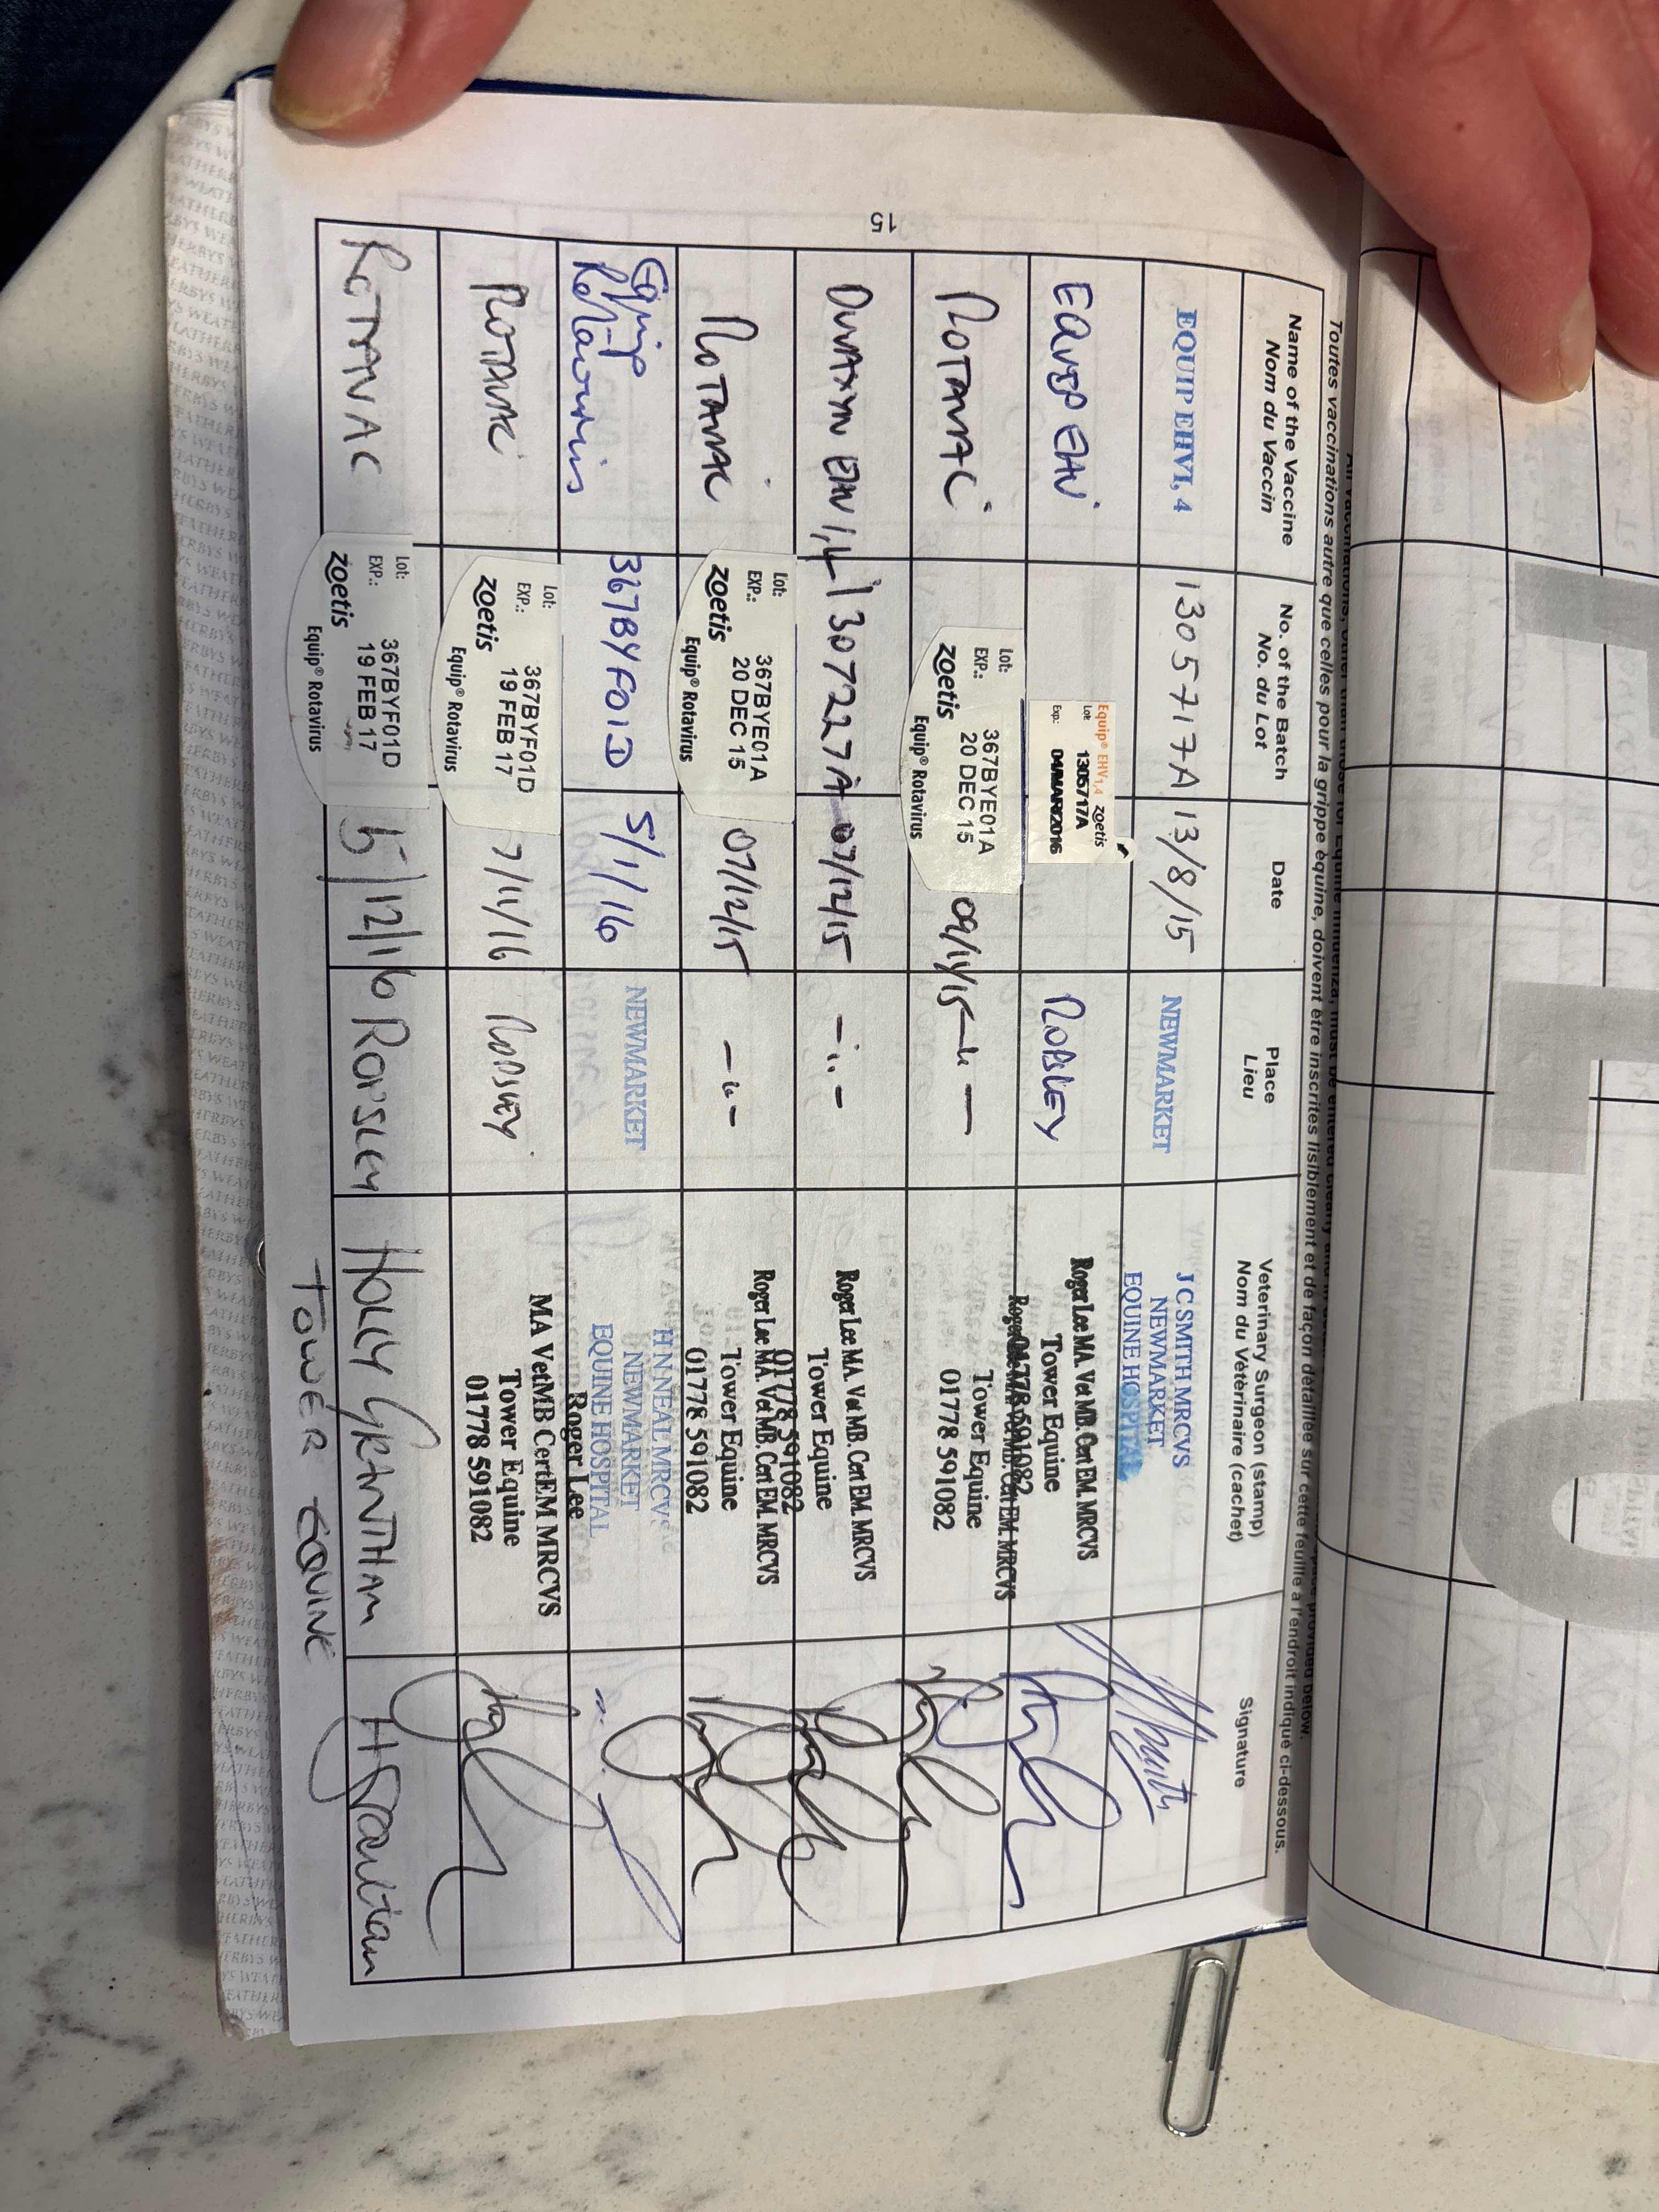 Toutes vaccinations autre que celles pour la grippe équine, doivent être inscrites lisiblement et de façon détaillée sur cette feuille a l'endroit indiqué ci-dessous.
Name of the Vaccine
Nom du Vaccin
No. of the Batch
No. du Lot
Date
Place
Lieu
Veterinary Surgeon (stamp)
Nom du Vétérinaire (cachet)
Signature
EQUIP EHV1, 4
1305717A
13/8/15
NEWMARKET
J C SMITH MRCVS
NEWMARKET
EQUINE HOSPITAL
EQUIP EHV
Equip® EHV1,4 zoetis
Lot: 1305717A
Exp.: 04MAR2016
Roger Lee MA. Vet MB. Cert EM. MRCVS
Tower Equine
01778 591082
ROTAVAC
Lot: 367BYE01A
EXP.: 20 DEC 15
zoetis Equip® Rotavirus
09/11/15
Roger Lee MA. Vet MB. Cert EM. MRCVS
Tower Equine
01778 591082
DUVAXYN EHV 1,4
1307227A
07/12/15
Roger Lee MA. Vet MB. Cert EM. MRCVS
Tower Equine
01778 591082
ROTAVAC
Lot: 367BYE01A
EXP.: 20 DEC 15
zoetis Equip® Rotavirus
07/12/15
Roger Lee MA. Vet MB. Cert EM. MRCVS
Tower Equine
01778 591082
Equip
Rotavirus
367BYF01D
5/1/16
NEWMARKET
H N NEAL MRCVS
NEWMARKET
EQUINE HOSPITAL
ROTAVAC
Lot: 367BYF01D
EXP.: 19 FEB 17
zoetis Equip® Rotavirus
7/11/16
Roger Lee
MA VetMB CertEM MRCVS
Tower Equine
01778 591082
ROTAVAC
Lot: 367BYF01D
EXP.: 19 FEB 17
zoetis Equip® Rotavirus
5/12/16
HOLLY GRANTHAM
HGrantham
TOWER EQUINE
15